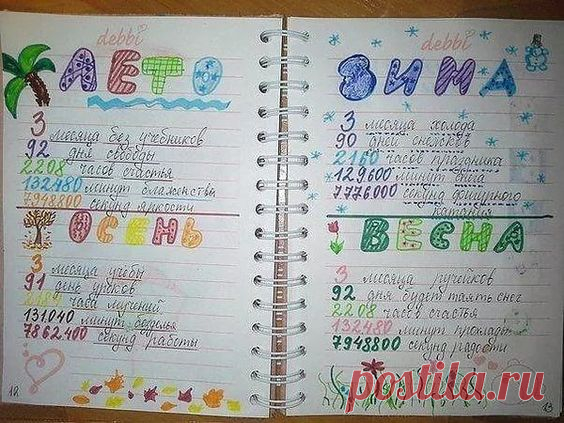 debbi
ЛЕТО
3 месяца без учебников
92 дня свободы
2208 часов счастья
132480 минут блаженства
7948800 секунд яркости
ОСЕНЬ
3 месяца учебы
91 день уроков
2184 часа мучений
131.040 минут
7.862.400 секунд работы
12
debbi
ЗИМА
3 месяца холода
90 дней снежков
2160 часов праздника
129.600 минут
7776.000 секунд фигурного
катания
ВЕСНА
3 месяца ручейков
92 дня будет таять снег
2208 часов счастья
132480 минут прохлады
7948800 секунд радости
13
postila.ru